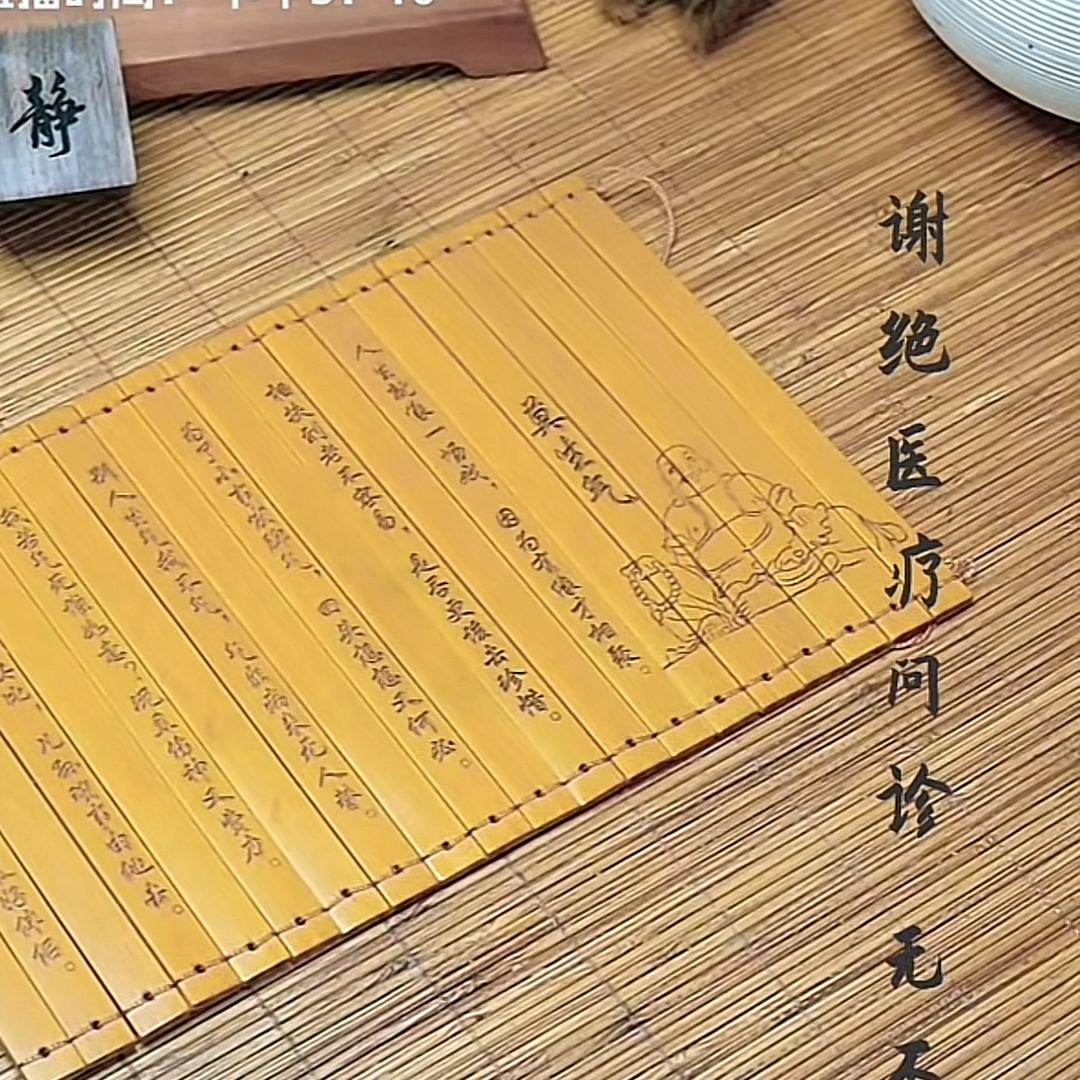 静
谢绝医疗问诊 无
莫生气
人生就像一场戏，因为有缘才相聚。
相扶到老不容易，是否更该去珍惜。
为了小事发脾气，回头想想又何必。
别人生气我不气，气出病来无人替。
我若气死谁如意，况且伤神又费力。
比，儿孙琐事由他去。
好伴侣。